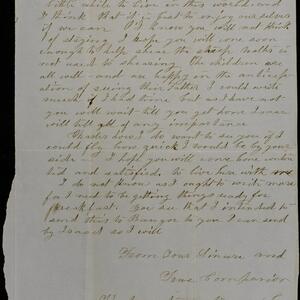 little while to live in this world and
I think that it is best to enjoy our selves
if we can I know you will not think
of staying I hope you will come soon
enough to help shear the sheep
not used to shearing The children are
all well and are happy in the anticipa
tion of seeing their father I could write
much if I had time but as I have not
you will wait till you get home Isaac
will tell all of any importance
how I do want to see you if I
could fly how quick I would be by your
side I hope you will come home contin
ted and satisfied to live here with me
I do not know as I ought to write more
for I need to be getting things ready for
breakfast You see that I intended to
send this to Bangor to you I can send
by Isaac so I will
From Your Sincere and
True Companion